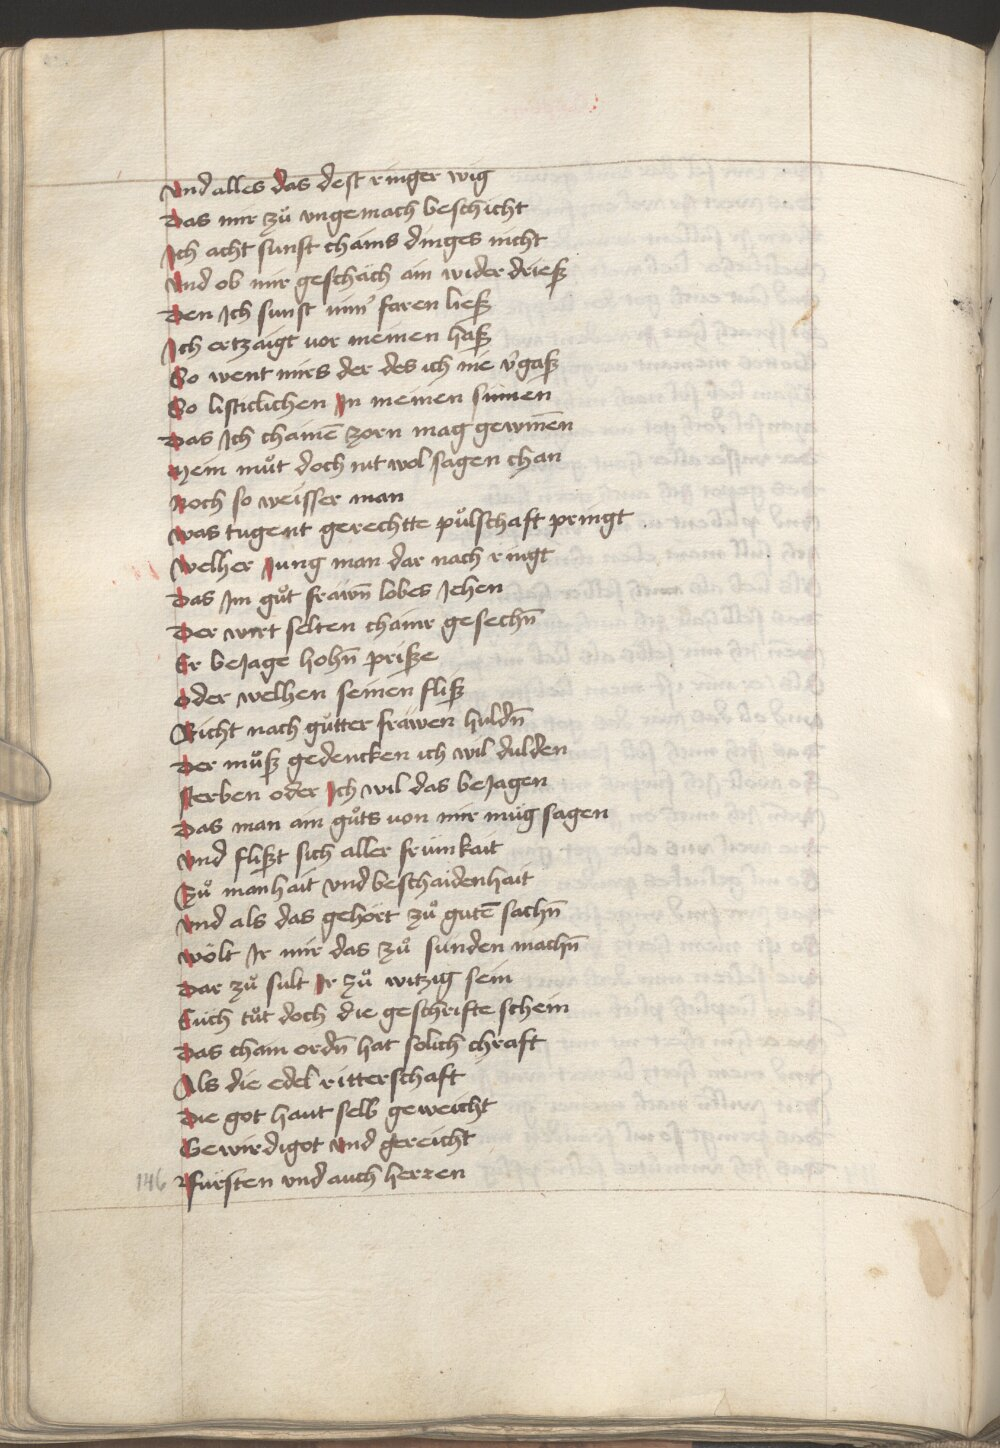 vnd alles das dest ringer wig
Das mir zů vngemach beschicht
Ich acht sunst chains dinges nicht
Vnd ob mir geschäch ain wider drieß
Den Ich sunst nim̄' faren ließ
Ich ertzaigt vor meinen haß
So went mirs der des ich nie v'gaß
So listiclichen In meinen sinnen
Das Ich chainē zorn mag gewinnē
Mein můt doch nit wol sagen chan
Noch so weisser man
was tugent gerechtte půlschaft pringt
welher Jung man dar nach ringt
Das Im gůt frawn̄ lobes Jehen
Der wirt selten chainr gesechn̄
Er beJage hohn̄ priße
oder welhen seinen fliß
Richt nach gůtter frawen huldn̄
Der můß gedencken ich wil dulden
sterben oder Ich wil das beJagen
Das man ain gůts von mir müg sagen
vnd flißt sich aller frümkait
Zů manhait vnd beschaidenhait
vnd als das gehört zů gutē sachn̄
wölt Ir mir das zů sunden machn̄
Dar zů sült Ir zů witzig sein
Euch tůt doch die geschrifte schein
Das chain ordn̄ hat solich chraft
Als die edel ritterschaft
Die got haut selb geweicht
Gewirdigot vnd gereicht
146 Fürsten vnd auch herren